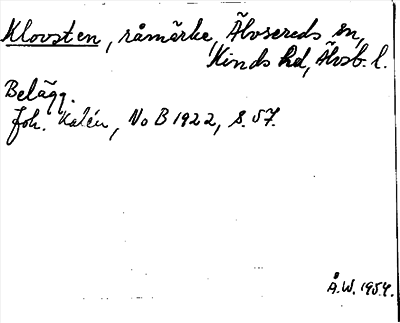 Klovsten, råmärke, Älvsereds sn,
Kinds hd, Älvsb. l.
Belägg.
Joh. Kalén, No B 1922, s. 57.
Å.W. 1954.